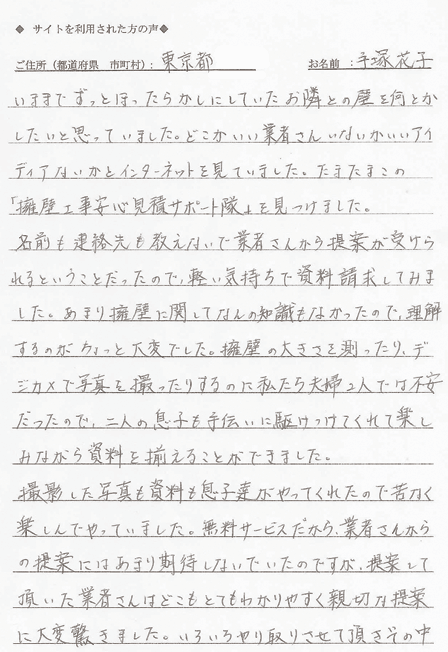 ◆ サイトを利用された方の声◆
ご住所（都道府県 市町村）：東京都 お名前 ：手塚花子
いままでずっとほったらかしにしていたお隣との壁を何とか
したいと思っていました。どこかいい業者さんいないかいいアイ
ディアないかとインターネットを見ていました。たまたまこの
「擁壁工事安心見積サポート隊」を見つけました。
名前も連絡先も教えないで業者さんから提案が受けら
れるということだったので、軽い気持ちで資料請求してみま
した。あまり擁壁に関してなんの知識もなかったので、理解
するのがちょっと大変でした。擁壁の大きさを測ったり、デ
ジカメで写真を撮ったりするのに私たち夫婦2人では不安
だったので、二人の息子も手伝いに駆けつけてくれて楽し
みながら資料を揃えることができました。
撮影した写真も資料も息子達がやってくれたので苦なく
楽しんでやっていました。無料サービスだから、業者さんから
の提案にはあまり期待しないでいたのですが、提案して
頂いた業者さんはどこもとてもわかりやすく親切な提案
に大変驚きました。いろいろやり取りさせて頂きその中